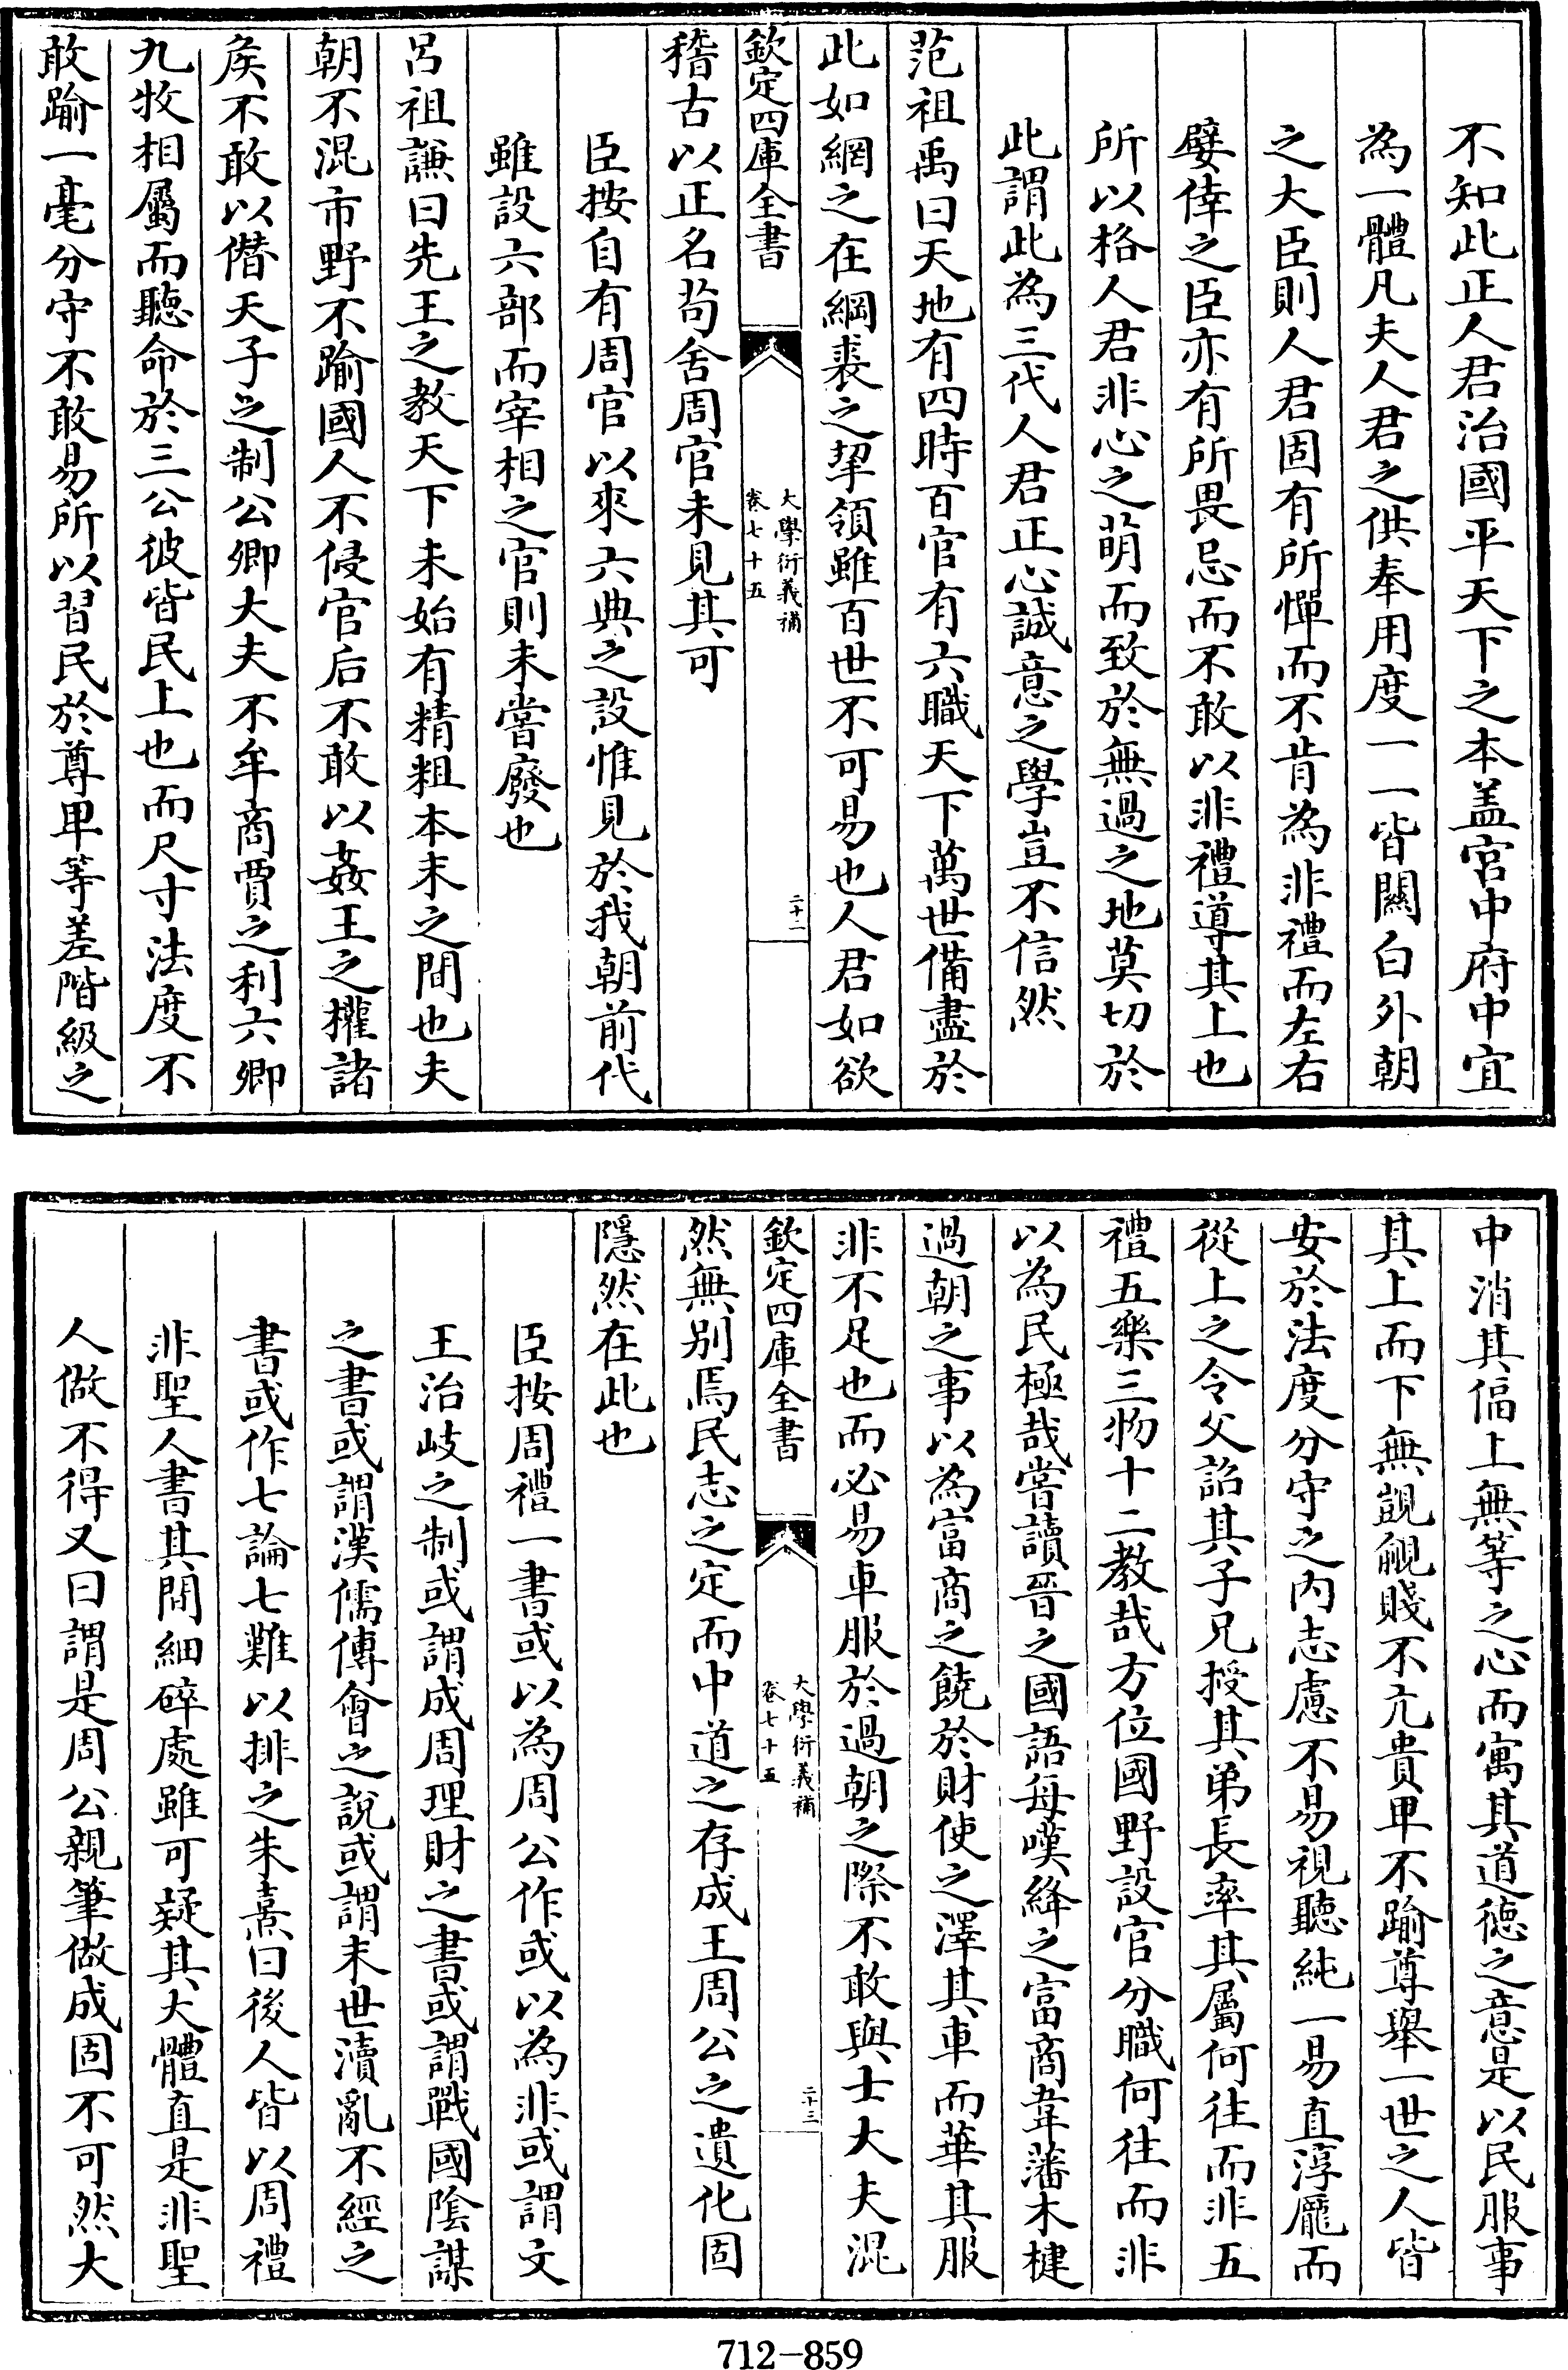 不知此正人君治國平天下之本盖宮中府中宜
為一體凡夫人君之供奉用度一一皆關白外朝
之大臣則人君固有所憚而不肯為非禮而左右
嬖倖之臣亦有所畏忌而不敢以非禮導其上也
所以格人君非心之萌而致於無過之地莫切於
此謂此為三代人君正心誠意之學豈不信然
范祖禹曰天地有四時百官有六職天下萬世備盡於
此如網之在綱裘之挈領雖百世不可易也人君如欲
欽定四庫全書
大學衍義補
卷七十五
二十二
稽古以正名茍舍周官未見其可
臣按自有周官以來六典之設惟見於我朝前代
雖設六部而宰相之官則未嘗廢也
呂祖謙曰先王之教天下未始有精粗本末之間也夫
朝不混市野不踰國人不侵官后不敢以姦王之權諸
侯不敢以僭天子之制公卿大夫不牟商賈之利六卿
九牧相屬而聽命於三公彼皆民上也而尺寸法度不
敢踰一毫分守不敢易所以習民於尊卑等差階級之
中消其偪上無等之心而寓其道徳之意是以民服事
其上而下無覬覦賤不亢貴卑不踰尊舉一世之人皆
安於法度分守之内志慮不易視聽純一易直淳龎而
從上之令父詔其子兄授其弟長率其屬何往而非五
禮五樂三物十二教哉方位國野設官分職何往而非
以為民極哉嘗讀晉之國語每嘆絳之富商韋藩木楗
過朝之事以為富商之饒於財使之澤其車而華其服
非不足也而必易車服於過朝之際不敢與士大夫混
欽定四庫全書
大學衍義補
卷七十五
二十三
然無别焉民志之定而中道之存成王周公之遺化固
隱然在此也
臣按周禮一書或以為周公作或以為非或謂文
王治岐之制或謂成周理財之書或謂戰國陰謀
之書或謂漢儒傅會之說或謂末世瀆亂不經之
書或作七論七難以排之朱熹曰後人皆以周禮
非聖人書其間細碎處雖可疑其大體直是非聖
人做不得又曰謂是周公親筆做成固不可然大
712-859